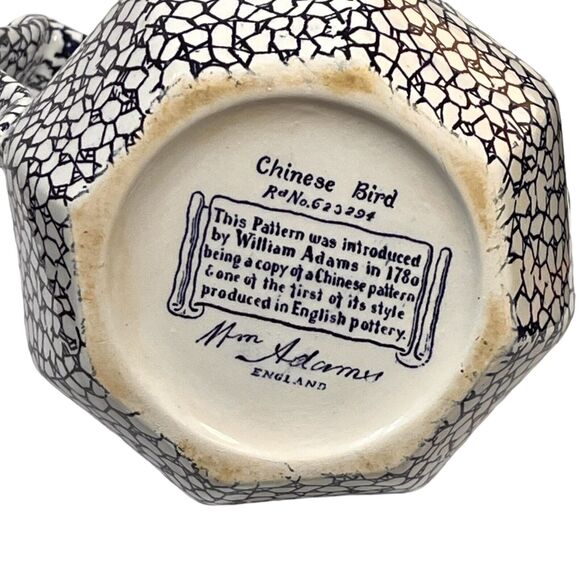 Chinese Bird
Rd No. 623294
This Pattern was introduced
by William Adams in 1780
being a copy of a Chinese pattern
& one of the first of its style
produced in English pottery.
Wm Adams
ENGLAND